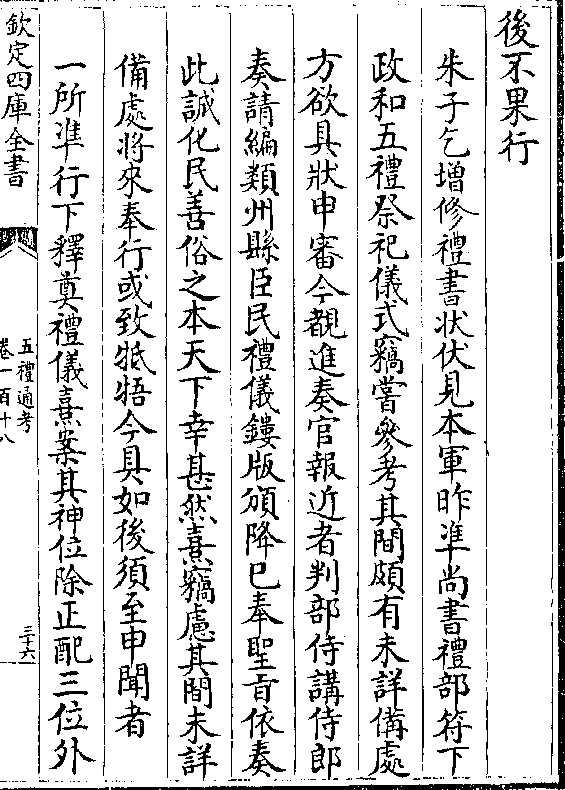 後不果行
朱子乞增修禮書狀伏見本軍昨準尚書禮部符下
政和五禮祭祀儀式竊嘗參考其間頗有未詳備處
方欲具狀申審今覩進奏官報近者判部侍講侍郎
奏請編類州縣臣民禮儀鏤版頒降已奉聖旨依奏
此誠化民善俗之本天下幸甚然熹竊慮其間未詳
備處將來奉行或致牴牾今具如後須至申聞者
一所準行下釋奠禮儀熹案其神位除正配三位外
欽定四庫全書
五禮通考
卷一百十八
三十六